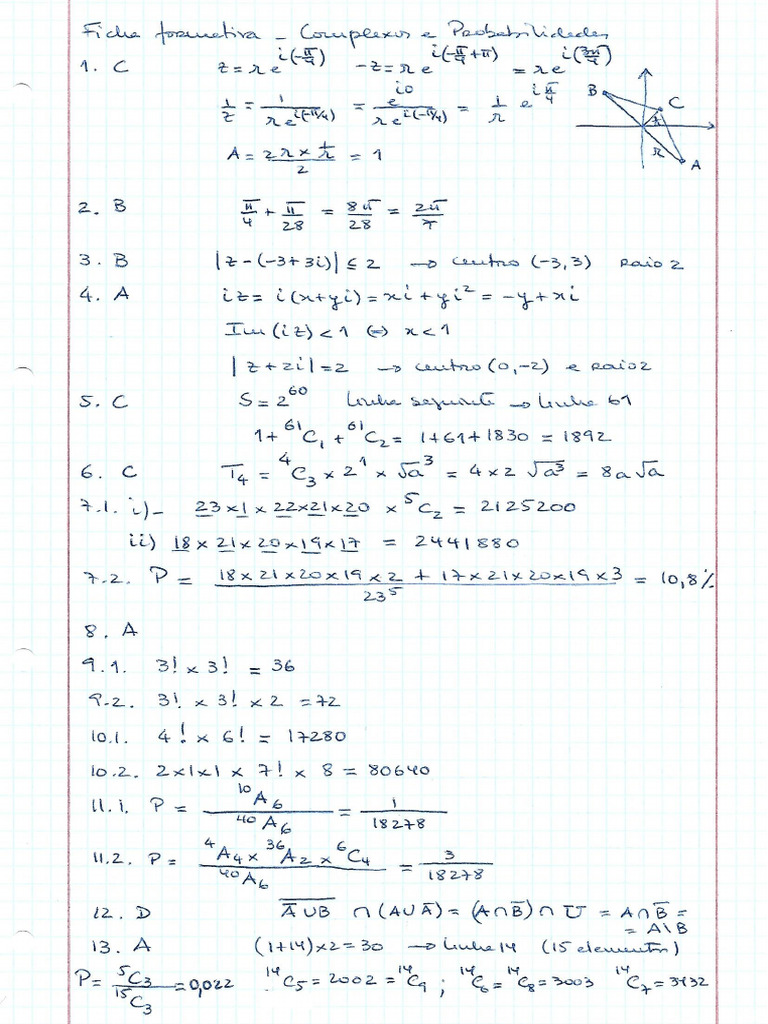 Ficha formativa - Complexos e Probabilidades
1. C z = r e^{i(-π/4)} -z = r e^{i(-π/4+π)} = r e^{i(3π/4)}
1/z = 1/(r e^{i(-π/4)}) = e^{i0}/(r e^{i(-π/4)}) = 1/r e^{iπ/4}
B C 1/r r A
A = (2r × 1/r)/2 = 1
2. B π/4 + π/28 = 8π/28 = 2π/7
3. B |z-(-3+3i)| ≤ 2 → centro (-3,3) raio 2
4. A iz = i(x+yi) = xi + yi² = -y + xi
Im(iz) < 1 ⇔ x < 1
|z+2i| = 2 → centro (0,-2) e raio 2
5. C S = 2^{60} linha seguinte → linha 61
1 + ⁶¹C₁ + ⁶¹C₂ = 1+61+1830 = 1892
6. C T₄ = ⁴C₃ × 2¹ × √a³ = 4×2 √a³ = 8a√a
7.1. i)- 23×1×22×21×20 × ⁵C₂ = 2125200
ii) 18×21×20×19×17 = 2441880
7.2. P = (18×21×20×19×2 + 17×21×20×19×3)/23⁵ = 10,8%
8. A
9.1. 3! × 3! = 36
9.2. 3! × 3! × 2 = 72
10.1. 4! × 6! = 17280
10.2. 2×1×1 × 7! × 8 = 80640
11.1. P = ¹⁰A₆/⁴⁰A₆ = 1/18278
11.2. P = (⁴A₄ × ³⁶A₂ × ⁶C₄)/⁴⁰A₆ = 3/18278
12. D \overline{\overline{A}∪B} ∩ (A∪\overline{A}) = (A∩\overline{B}) ∩ U = A∩\overline{B} =
= A\B
13. A (1+14)×2 = 30 → linha 14 (15 elementos)
P = ⁵C₃/¹⁵C₃ = 0,022 ¹⁴C₅ = 2002 = ¹⁴C₉ ; ¹⁴C₆ = ¹⁴C₈ = 3003 ¹⁴C₇ = 3432